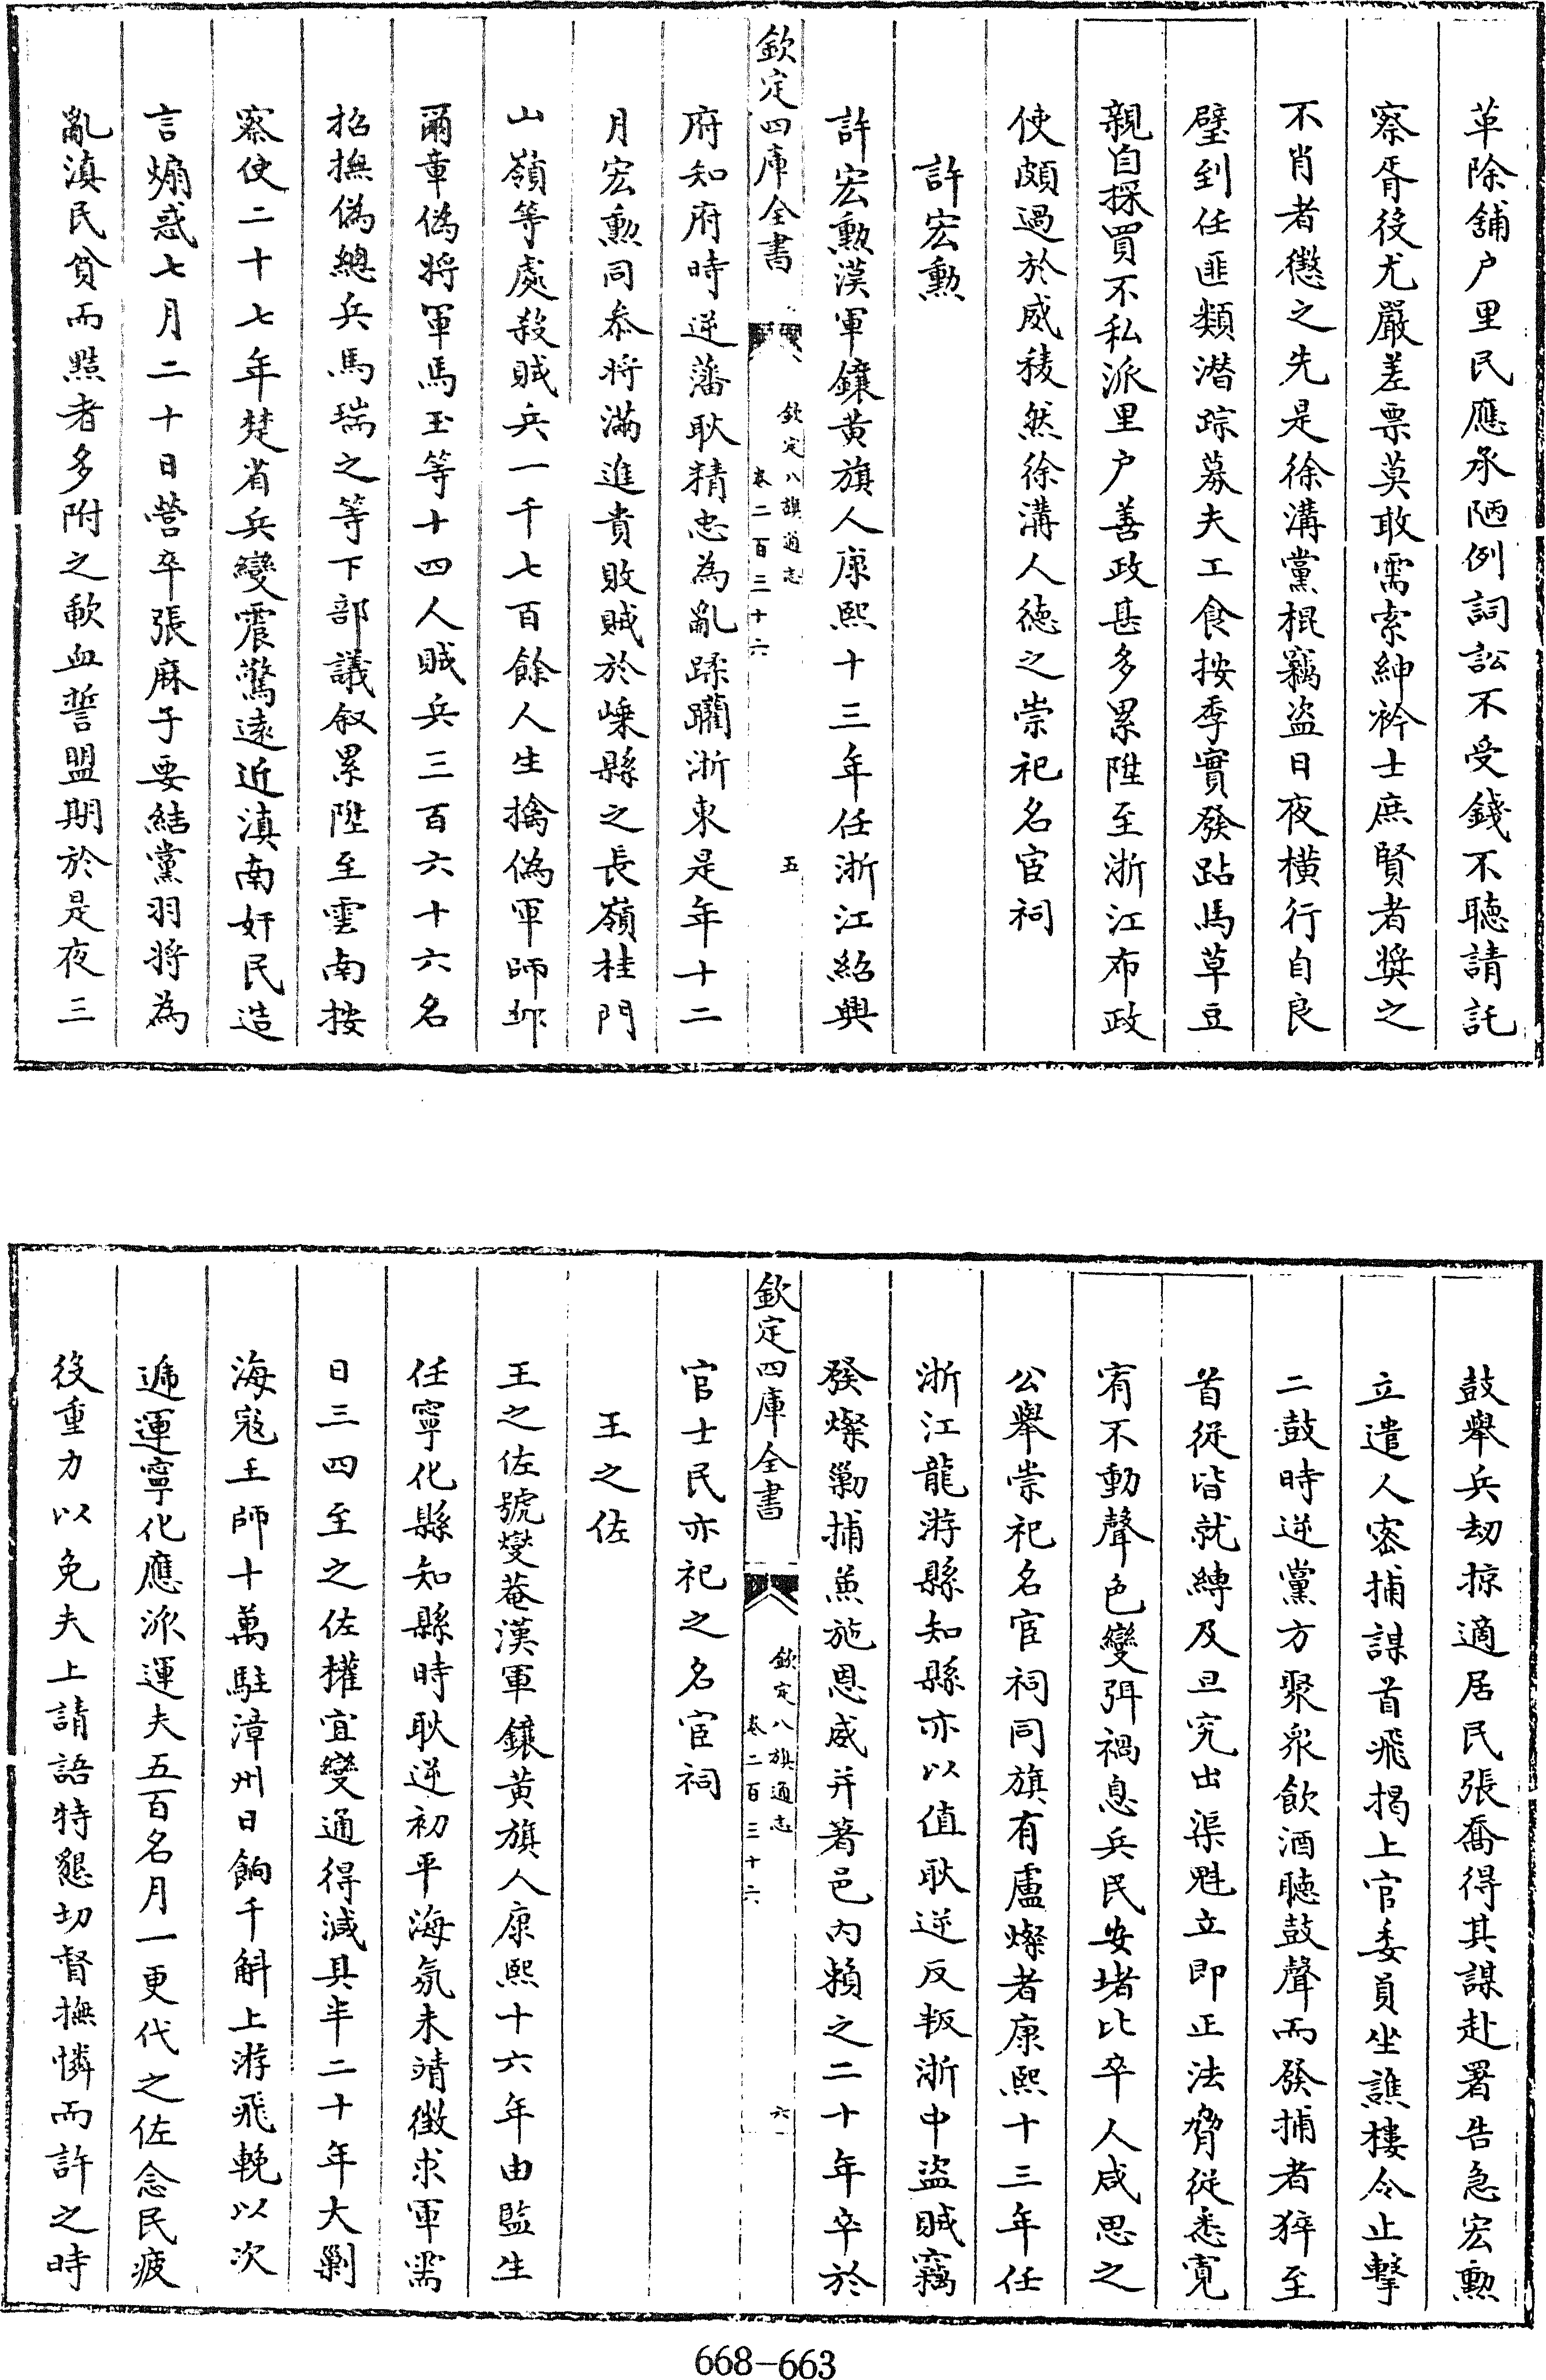 革除舖户里民應承陋例詞訟不受錢不聽請託
察胥役尤嚴差票莫敢需索紳衿士庶賢者獎之
不肖者懲之先是徐溝黨棍竊盜日夜横行自良
璧到任匪類潜踪募夫工食按季實發跕馬草豆
親自採買不私派里户善政甚多累陞至浙江布政
使頗過於威稜然徐溝人德之崇祀名宦祠
許宏勲
許宏勲漢軍鑲黄旗人康熙十三年任浙江紹興
欽定四庫全書
欽定八旗通志
卷二百三十六
五
府知府時逆藩耿精忠為亂蹂躪浙東是年十二
月宏勲同叅將滿進貴敗賊於嵊縣之長嶺桂門
山嶺等處殺賊兵一千七百餘人生擒偽軍師邱
爾章偽將軍馬玉等十四人賊兵三百六十六名
招撫偽總兵馬瑞之等下部議叙累陞至雲南按
察使二十七年楚省兵變震驚遠近滇南奸民造
言煽惑七月二十日營卒張麻子要結黨羽將為
亂滇民貧而黠者多附之歃血誓盟期於是夜三
鼓舉兵刼掠適居民張喬得其謀赴署告急宏勲
立遣人密捕謀首飛揭上官委員坐譙樓令止擊
二鼓時逆黨方聚衆飲酒聽鼓聲而發捕者猝至
首從皆就縛及旦究出渠魁立即正法脅從悉寛
宥不動聲色變弭禍息兵民安堵比卒人咸思之
公舉崇祀名宦祠同旗有盧燦者康熙十三年任
浙江龍游縣知縣亦以值耿逆反叛浙中盜賊竊
發燦勦捕兼施恩威并著邑内賴之二十年卒於
欽定四庫全書
欽定八旗通志
卷二百三十六
六
官士民亦祀之名宦祠
王之佐
王之佐號燮菴漢軍鑲黄旗人康熙十六年由監生
任寧化縣知縣時耿逆初平海氛未靖徴求軍需
日三四至之佐權宜變通得減其半二十年大剿
海寇王師十萬駐漳州日餉千斛上游飛輓以次
遞運寧化應派運夫五百名月一更代之佐念民疲
役重力以免夫上請語特懇切督撫憐而許之時
668-663